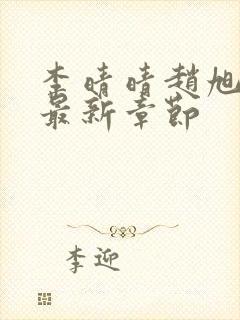 李晴晴趙旭
最新章節
李迎